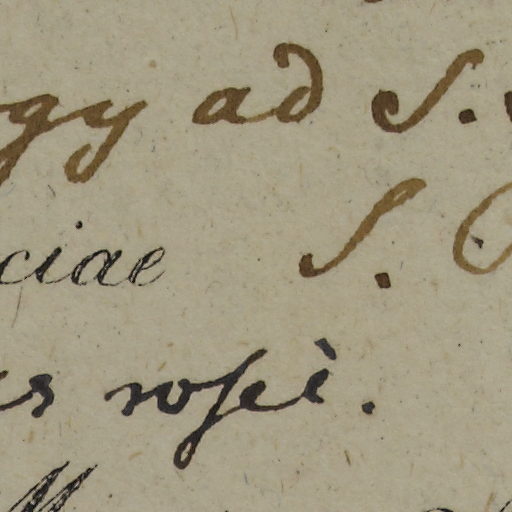 gy ad S.
ciae S.
s rosei.